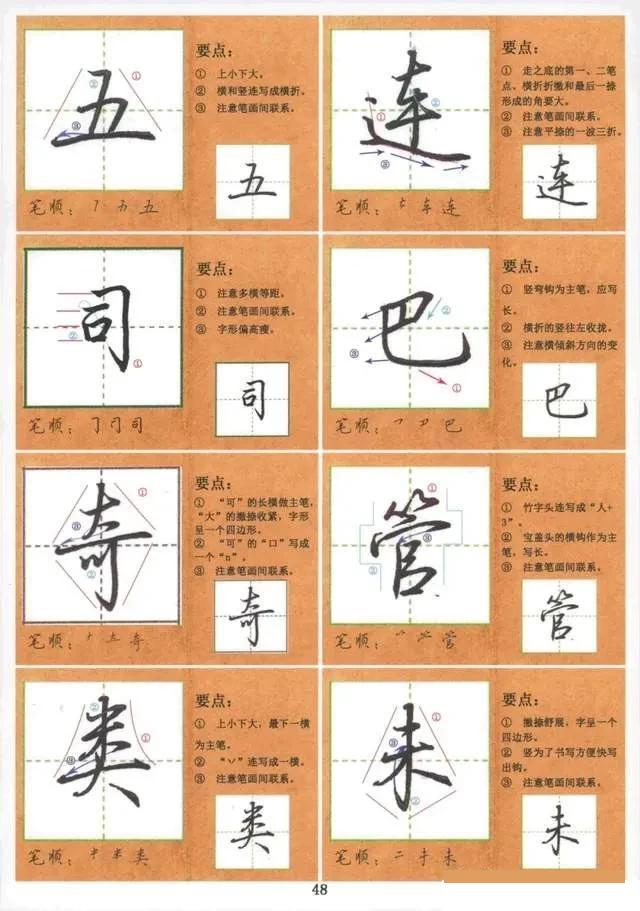 五
要点：
① 上小下大。
② 横和竖连写成横折。
③ 注意笔画间联系。
① ② ③
五
笔顺：㇕ 五 五
连
要点：
① 走之底的第一、二笔
点、横折折撇和最后一捺
形成的角要大。
② 注意笔画间联系。
③ 注意平捺的一波三折。
① ② ③
连
笔顺：车 连
司
要点：
① 注意多横等距。
② 注意笔画间联系。
③ 字形偏高瘦。
② ①
司
笔顺：司
巴
要点：
① 竖弯钩为主笔，应写
长。
② 横折的竖往左收拢。
③ 注意横倾斜方向的变
化。
② ③ ①
巴
笔顺：巴
奇
要点：
① “可”的长横做主笔，
“大”的撇捺收紧，字形
呈一个四边形。
② “可”的“口”写成
一个“n”。
③ 注意笔画间联系。
① ③ ②
奇
笔顺：奇
管
要点：
① 竹字头连写成“人+
3”。
② 宝盖头的横钩作为主
笔，写长。
③ 注意笔画间联系。
① ③ ②
管
笔顺：管
类
要点：
① 上小下大，最下一横
为主笔。
② “丷”连写成一横。
③ 注意笔画间联系。
② ① ③
类
笔顺：类
未
要点：
① 撇捺舒展，字呈一个
四边形。
② 竖为了书写方便快写
出钩。
③ 注意笔画间联系。
① ③ ②
未
笔顺：二 未
48